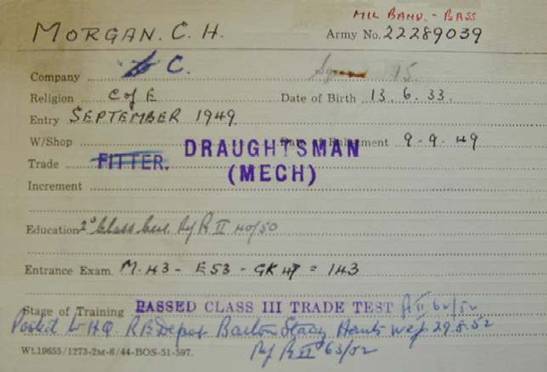 MIL BAND. - BASS
MORGAN. C. H. Army No. 22289039
Company C. 15
Religion C of E Date of Birth 13. 6. 33.
Entry SEPTEMBER 1949
W/Shop Date of Enlistment 9-9-49
Trade FITTER. DRAUGHTSMAN
(MECH)
Increment
Education 2d Class Cert R/I II 40/50
Entrance Exam. M. 43 - E 53 - GK 47 = 143
Stage of Training PASSED CLASS III TRADE TEST II 62/52
Posted to HQ Depot Barton Stacey Hants wef 29.5.52
Wt.19655/1273-2M-8/44-BOS-51-597. II 63/52